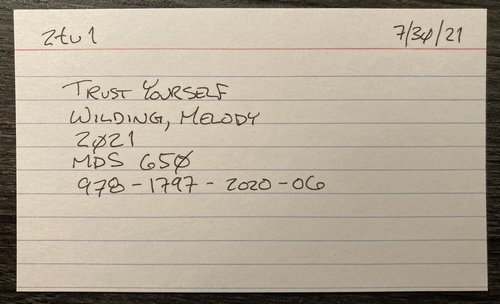 2tu1
7/30/21
TRUST YOURSELF
WILDING, MELODY
2021
MDS 650
978-1797-2020-06